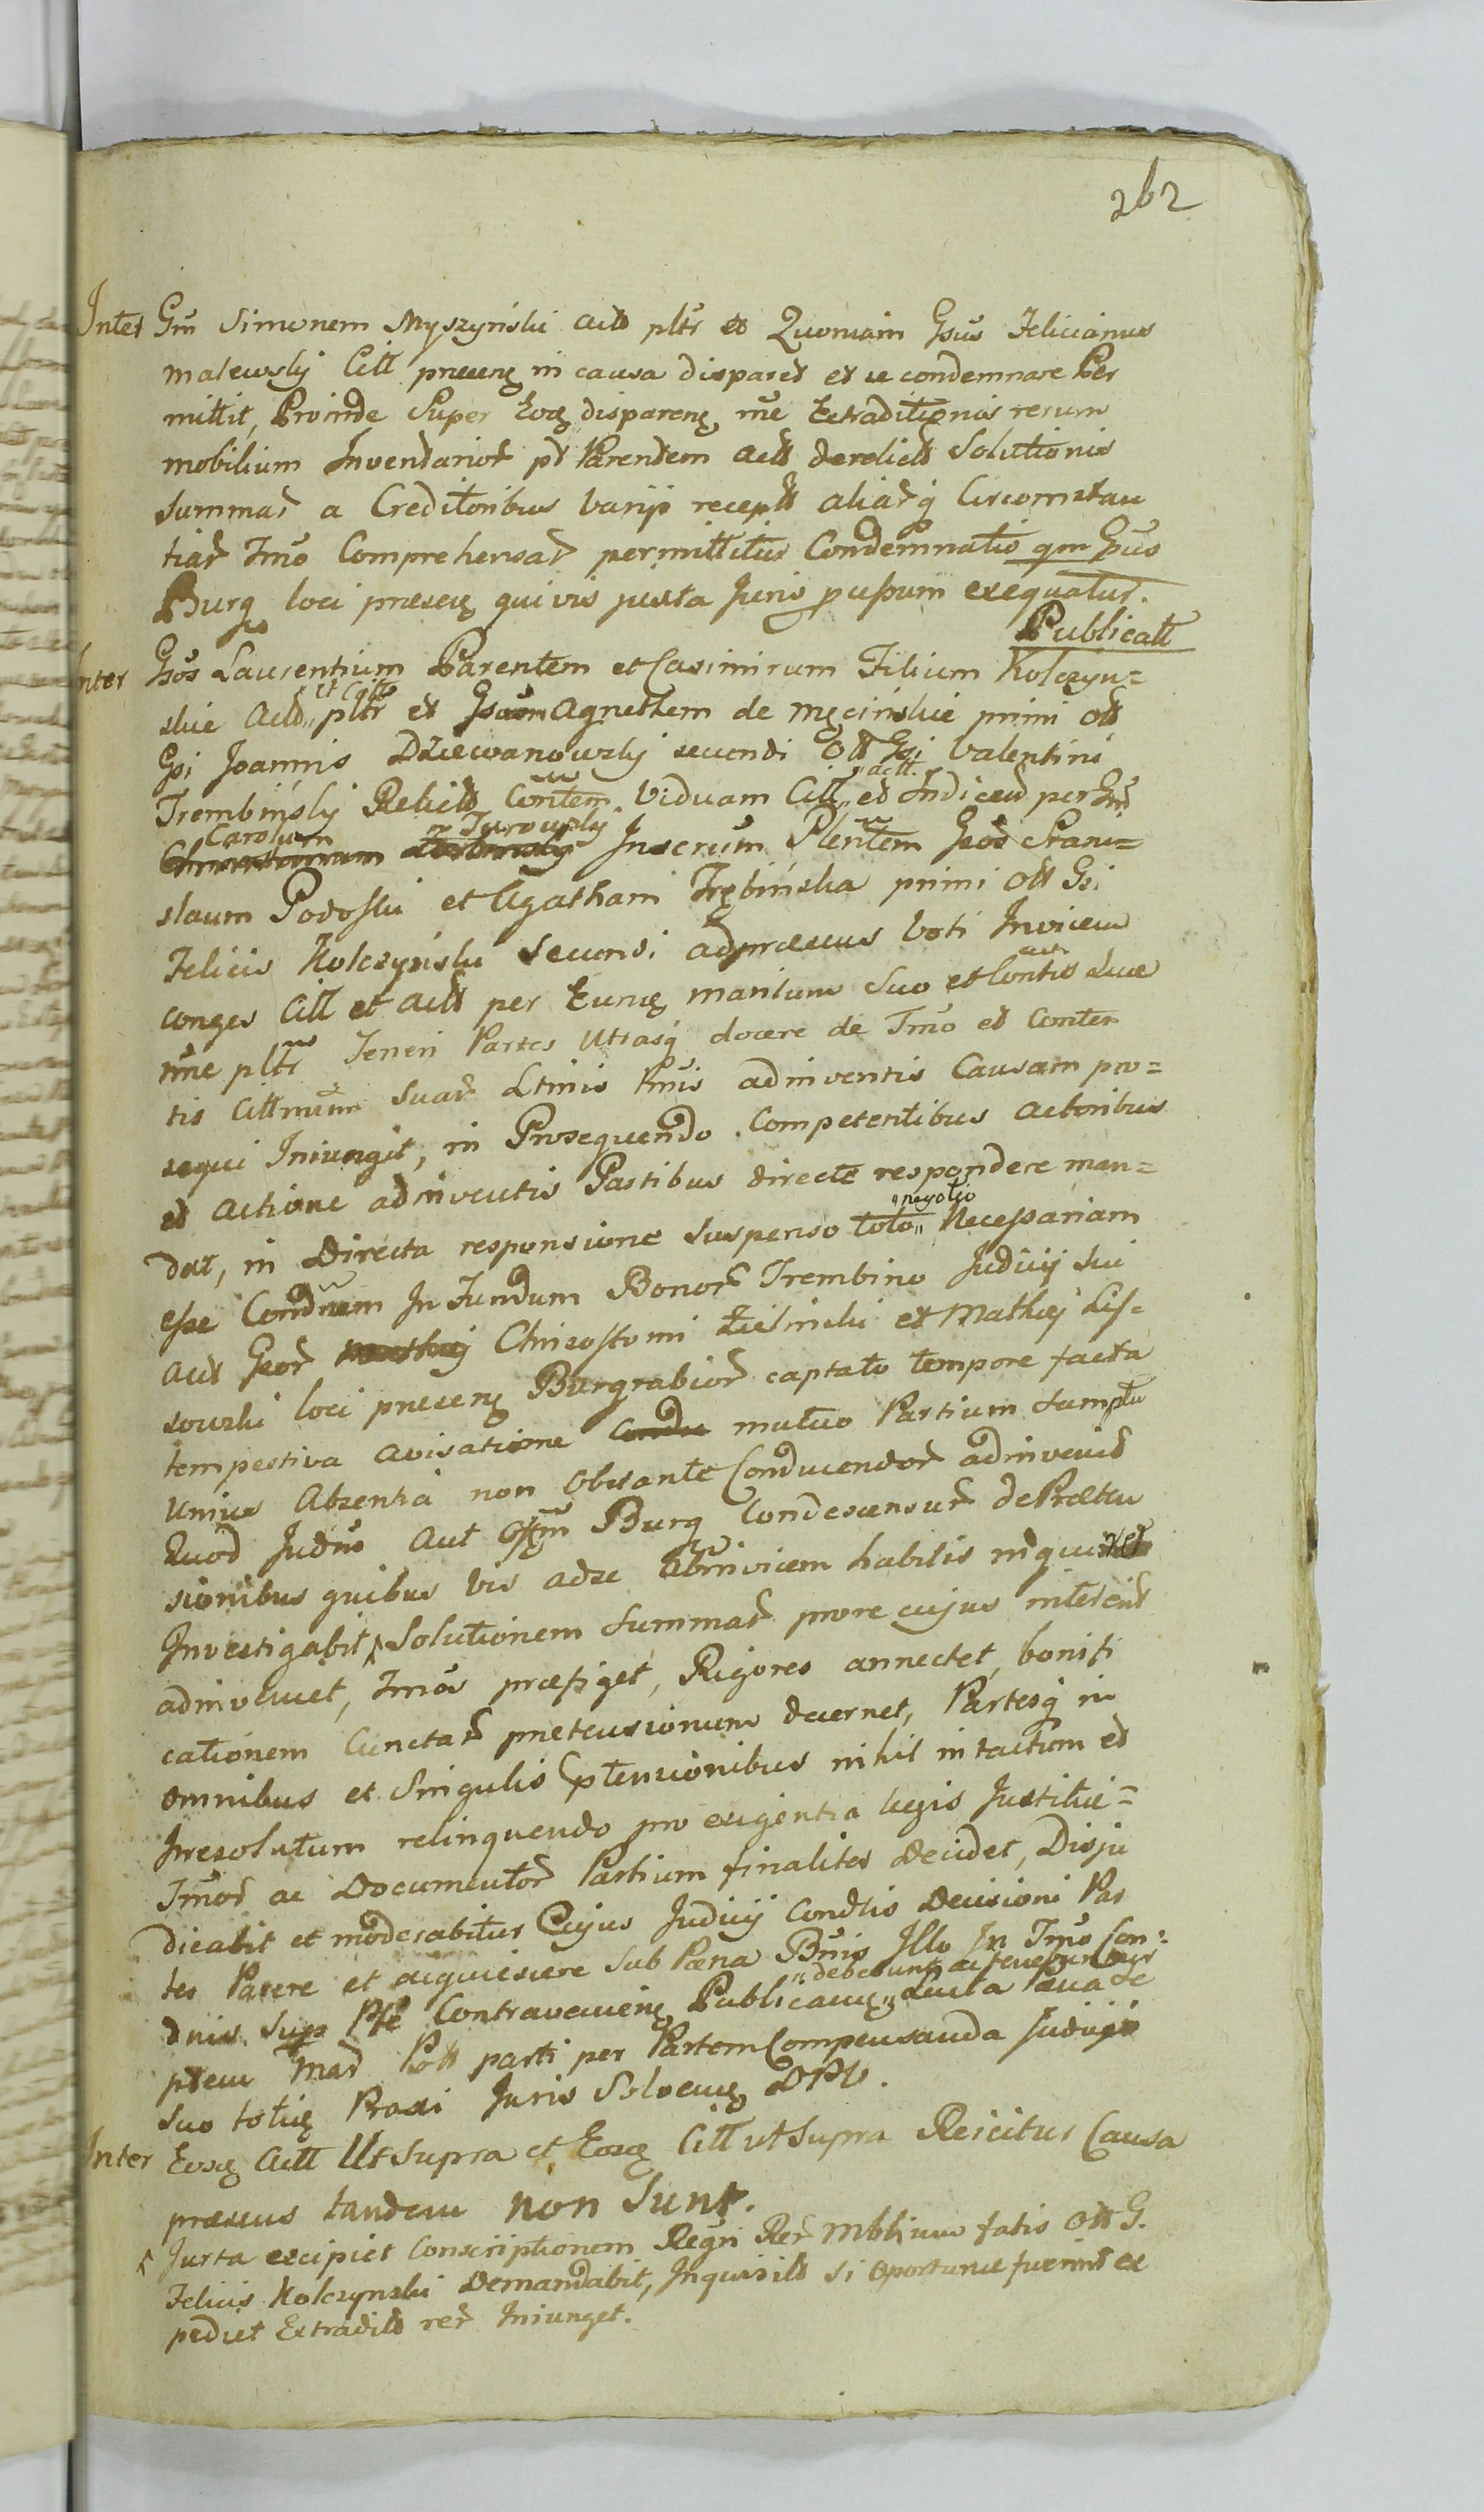 262
Inter Gm Simonem Myszyński actt pltr et Quoniam Gsus Felicianus
malewsky Citt praesens in causa disparet et se condemnare Per
mittit, Proinde Super Eoq disparenq rne Extraditionis rerum
mobilium Inventarior pt Parentem actt derelictt Solutionis
summar a Creditoribus varijs receptt aliarq Circomstan
tiar Tmo Comprehensar permittitur Condemnatio qm Gsus
Burg loci praesens quivis juxta Juris pussum exequatur.
Publicatt
Inter Gsos Laurentium Parentem et Casimirum Filium Kolczyn=
skie actt „ut Citt pltr et Gsam Agnethem de Męcińskie primi ott
Gsi Joannis Dziewanowsky secundi Ott Gsi Valentini
Trembińsky Relictt Contem Viduam Citt „actt. et Indicen per Gm
Carolum Turowsky Inscrum Plentem Gsos Stani=
slaum Podoski et Agatham Trębińska primi Ott Gsi
Felicis Kolczyński secundi ad praesens voti Invicem
conges Citt et actt per Eunq maritum suo et Contis suae
rne pltr Teneri Partes Utrasq docere de Tmo et Conten
tis Cittnum suar Ltinis Pmis adinventis Causam pro=
sequi Iniungit, in Prosequendo Competentibus actoribus
et actione adinventis Partibus directe respondere man=
dat, in Directa responsione suspenso toto „negotio Necessariam
esse Condnem In Fundum Bonor Trembino Judicij sui
actt Gsor Chrisostomi Zielinski et Mathiej Lis=
sowski loci praesens Burgrabior captato tempore facta
tempestiva avisatione mutuo Partium sumptu
unius absentia non obstante Conducendor adinvenit
Quod Judm aut Gsm Burg Condescensur de Praeten
sionibus quibus vis ad se abinvicem habitis inquiret
Investigabit, Solutionem summar prore cujus intererit
adinveniet, Tmos praefiget, Rigores annectet, bonifi
cationem Cunctar praetensionum decernet, Partesq in
omnibus et Singulis ptensionibus nihil intactum et
Irresolutum relinquendo pro exigentia legis Justitiae=
Tmor ac Documentor Partium finaliter Decidet, Disju
dicabit et moderabitur Cujus Judicij Condtis Decisioni Par
tes Parere et acquiescere sub Paena Bnis Illo In Tmo Con=
dnis Sup Pte Contravenienq Publicanq „debebunt ac tenebuntur Luita Paena de
ptem Mar Polt parti per Partem Compensanda Judicio
suo totieq Praxi Juris Solvenq DPU.
Inter Eosq actt Ut supra et Eosq Citt ut supra Reicitur Causa
praesens tandem non Sunt.
Juxta excipiet Conscriptionem Regn Rer Mblium fatis Ott G.
Felicis Kolczynski Demandabit, Inquisitt si oportunae fuerint ex
pediet Extraditt rer Iniunget.